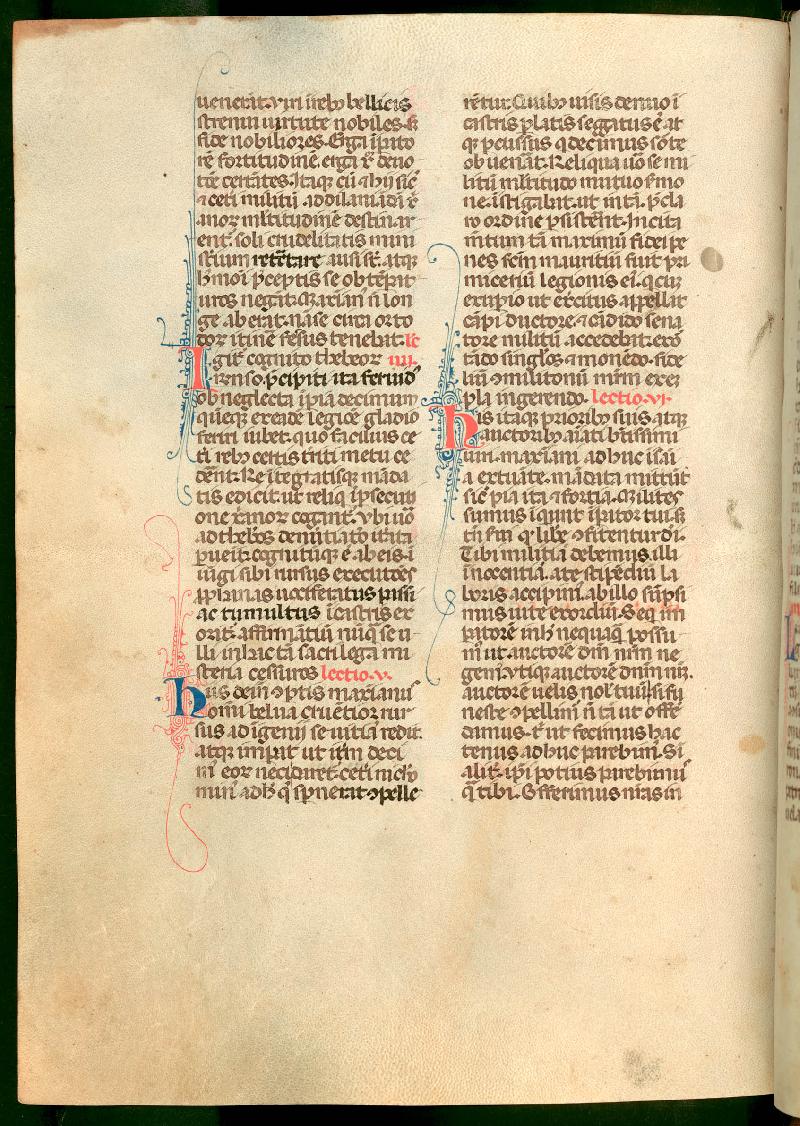 uenerāt. viri ī reb₉ bellicis
strenui uirtute nobiles. s₃
fide nobiliores. Erga īpato
rē fortitudinē. erga x̄ deuo
tōe certātes. Itaq₃ cū ⁊ hij sic̄
⁊ ceti militū. ad dilaniādā x̄
anoꝝ m̄ltitudinē destinar
ent². soli crudelitatis mini
sterium retrectare ausi st̄. atq₃
hꝰmoi p̄ceptis se obtēpat
uros negāt. Maxian² n̄ lon
ge aberat. nā se circa octo
dor² itinē fessus tenebat. lc̄
Igit² cognito thebeoꝝ iiij.
r̄enso. p̄cipiti ira feruid²
ob neglecta īpia decimum
quēq₃ ex eadē legiōe gladio
feriri iubet. quo facilius ce
ti reb₉ ceteris triti metu ce
dent. Reītegratisq₃ māda
tis edicit. ut reliq̄ ī p̄secuti
one x̄anoꝝ cogant². Vbi uō
ad thebeos denūtiatō iterata
puēit. cognitūq₃ ē ab eis. ī
iūgi sibi rursus executōēs
pphanas uociferatus passi
ac tumultus ī castris ex
orit². affirmātiū nūq̄ se u
lli in hac tā sacrilega mi
steria cessuros lectio. v.
Hiis dein ɔptis maxian²
om̄i belua cruētior rur
sus ad īgenij seuitiā redit.
atq₃ imꝑat ut itm̄ deci
m² eoꝝ neci daret². cetī nichi
min² ad h̄ q̄ spnerāt ɔpelle
rēt². Quib₉ iussis denuo ī
castris platis segregatus ē. at
q₃ pcussus q decimus sorte
obuenāt. Reliqua uō se mi
litū m̄ltitudo mutuo smō
ne īstigabāt. ut in tā p̄cla
ro ord'ine psistēnt. Incita
mētum tā maximū fidei pe
nes scm̄ mauritiū fuit pri
miceriū legionis ei². q cū
exupio ut exercitus appellat
cāpi ductore. ⁊ cādido sena
tore militū accedebāt. exor
tādo singlos ⁊ monēdo. fide
liū ɔmilitonū m̄rm̄ exem
pla ingerendo. lectio. vi.
Hiis itaq₃ priorib₉ suis atq₃
auctorib₉ aīati btissimi
uiri. maxiani ad huc īsaī
a extuāte. mādata mittūt
sic̄ pia ita ⁊ fortia. Milites
sumus īquiunt īꝑator tui. s₃
tn̄ s²ui q² libe ɔfitemur di.
Tibi militiā debemus. illi
īnocentiā. a te stipēdiū la
boris accepim². ab illo sūpsi
mus uite exordiū. Seq im
patorē in h̄ nequaq̄ possu
m² ut auctorē dn̄m nrm̄ ne
gem². vtiq₃ auctorē dn̄m nr̄.
auctorē uelis nolis tuū. si fu
neste ɔpellim² n̄ tā ut offē
damus. ō ut fecimus hac
tenus adhuc parebim². Si
alit². ip̄i potius parebim²
q̄ tibi. Offerimus nras in